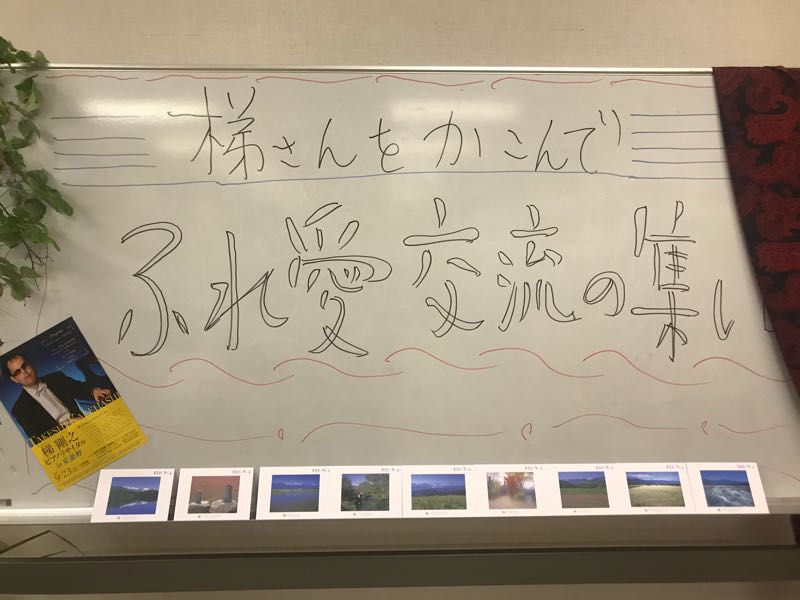 梯さんをかこんで
ふれ愛交流の集い
TAKESHI KAKEHASHI
梯 剛之
ピアノリサイタル
in 安曇野
9/23